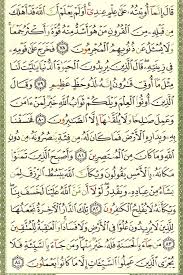 قَالَ إِنَّمَآ أُوتِيتُهُۥ عَلَىٰ عِلْمٍ عِندِىٓ أَوَلَمْ يَعْلَمْ أَنَّ ٱللَّهَ قَدْ أَهْلَكَ
مِن قَبْلِهِۦ مِنَ ٱلْقُرُونِ مَنْ هُوَ أَشَدُّ مِنْهُ قُوَّةً وَأَكْثَرُ جَمْعًا
وَلَا يُسْـَٔلُ عَن ذُنُوبِهِمُ ٱلْمُجْرِمُونَ ٧٨ فَخَرَجَ عَلَىٰ قَوْمِهِۦ
فِى زِينَتِهِۦ قَالَ ٱلَّذِينَ يُرِيدُونَ ٱلْحَيَوٰةَ ٱلدُّنْيَا يَـٰلَيْتَ لَنَا
مِثْلَ مَآ أُوتِىَ قَـٰرُونُ إِنَّهُۥ لَذُو حَظٍّ عَظِيمٍ ٧٩ وَقَالَ
ٱلَّذِينَ أُوتُوا۟ ٱلْعِلْمَ وَيْلَكُمْ ثَوَابُ ٱللَّهِ خَيْرٌ لِّمَنْ ءَامَنَ
وَعَمِلَ صَـٰلِحًا وَلَا يُلَقَّىٰهَآ إِلَّا ٱلصَّـٰبِرُونَ ٨٠ فَخَسَفْنَا
بِهِۦ وَبِدَارِهِ ٱلْأَرْضَ فَمَا كَانَ لَهُۥ مِن فِئَةٍ يَنصُرُونَهُۥ مِن دُونِ
ٱللَّهِ وَمَا كَانَ مِنَ ٱلْمُنتَصِرِينَ ٨١ وَأَصْبَحَ ٱلَّذِينَ تَمَنَّوْا۟
مَكَانَهُۥ بِٱلْأَمْسِ يَقُولُونَ وَيْكَأَنَّ ٱللَّهَ يَبْسُطُ ٱلرِّزْقَ لِمَن
يَشَآءُ مِنْ عِبَادِهِۦ وَيَقْدِرُ لَوْلَآ أَن مَّنَّ ٱللَّهُ عَلَيْنَا لَخَسَفَ بِنَا
وَيْكَأَنَّهُۥ لَا يُفْلِحُ ٱلْكَـٰفِرُونَ ٨٢ تِلْكَ ٱلدَّارُ ٱلْـَٔاخِرَةُ نَجْعَلُهَا
لِلَّذِينَ لَا يُرِيدُونَ عُلُوًّا فِى ٱلْأَرْضِ وَلَا فَسَادًا وَٱلْعَـٰقِبَةُ لِلْمُتَّقِينَ
٨٣ مَن جَآءَ بِٱلْحَسَنَةِ فَلَهُۥ خَيْرٌ مِّنْهَا وَمَن جَآءَ بِٱلسَّيِّئَةِ فَلَا
يُجْزَى ٱلَّذِينَ عَمِلُوا۟ ٱلسَّيِّـَٔاتِ إِلَّا مَا كَانُوا۟ يَعْمَلُونَ ٨٤